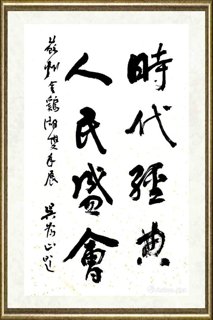 時代經典
人民盛會
蘇州金鷄湖雙年展 吳為山